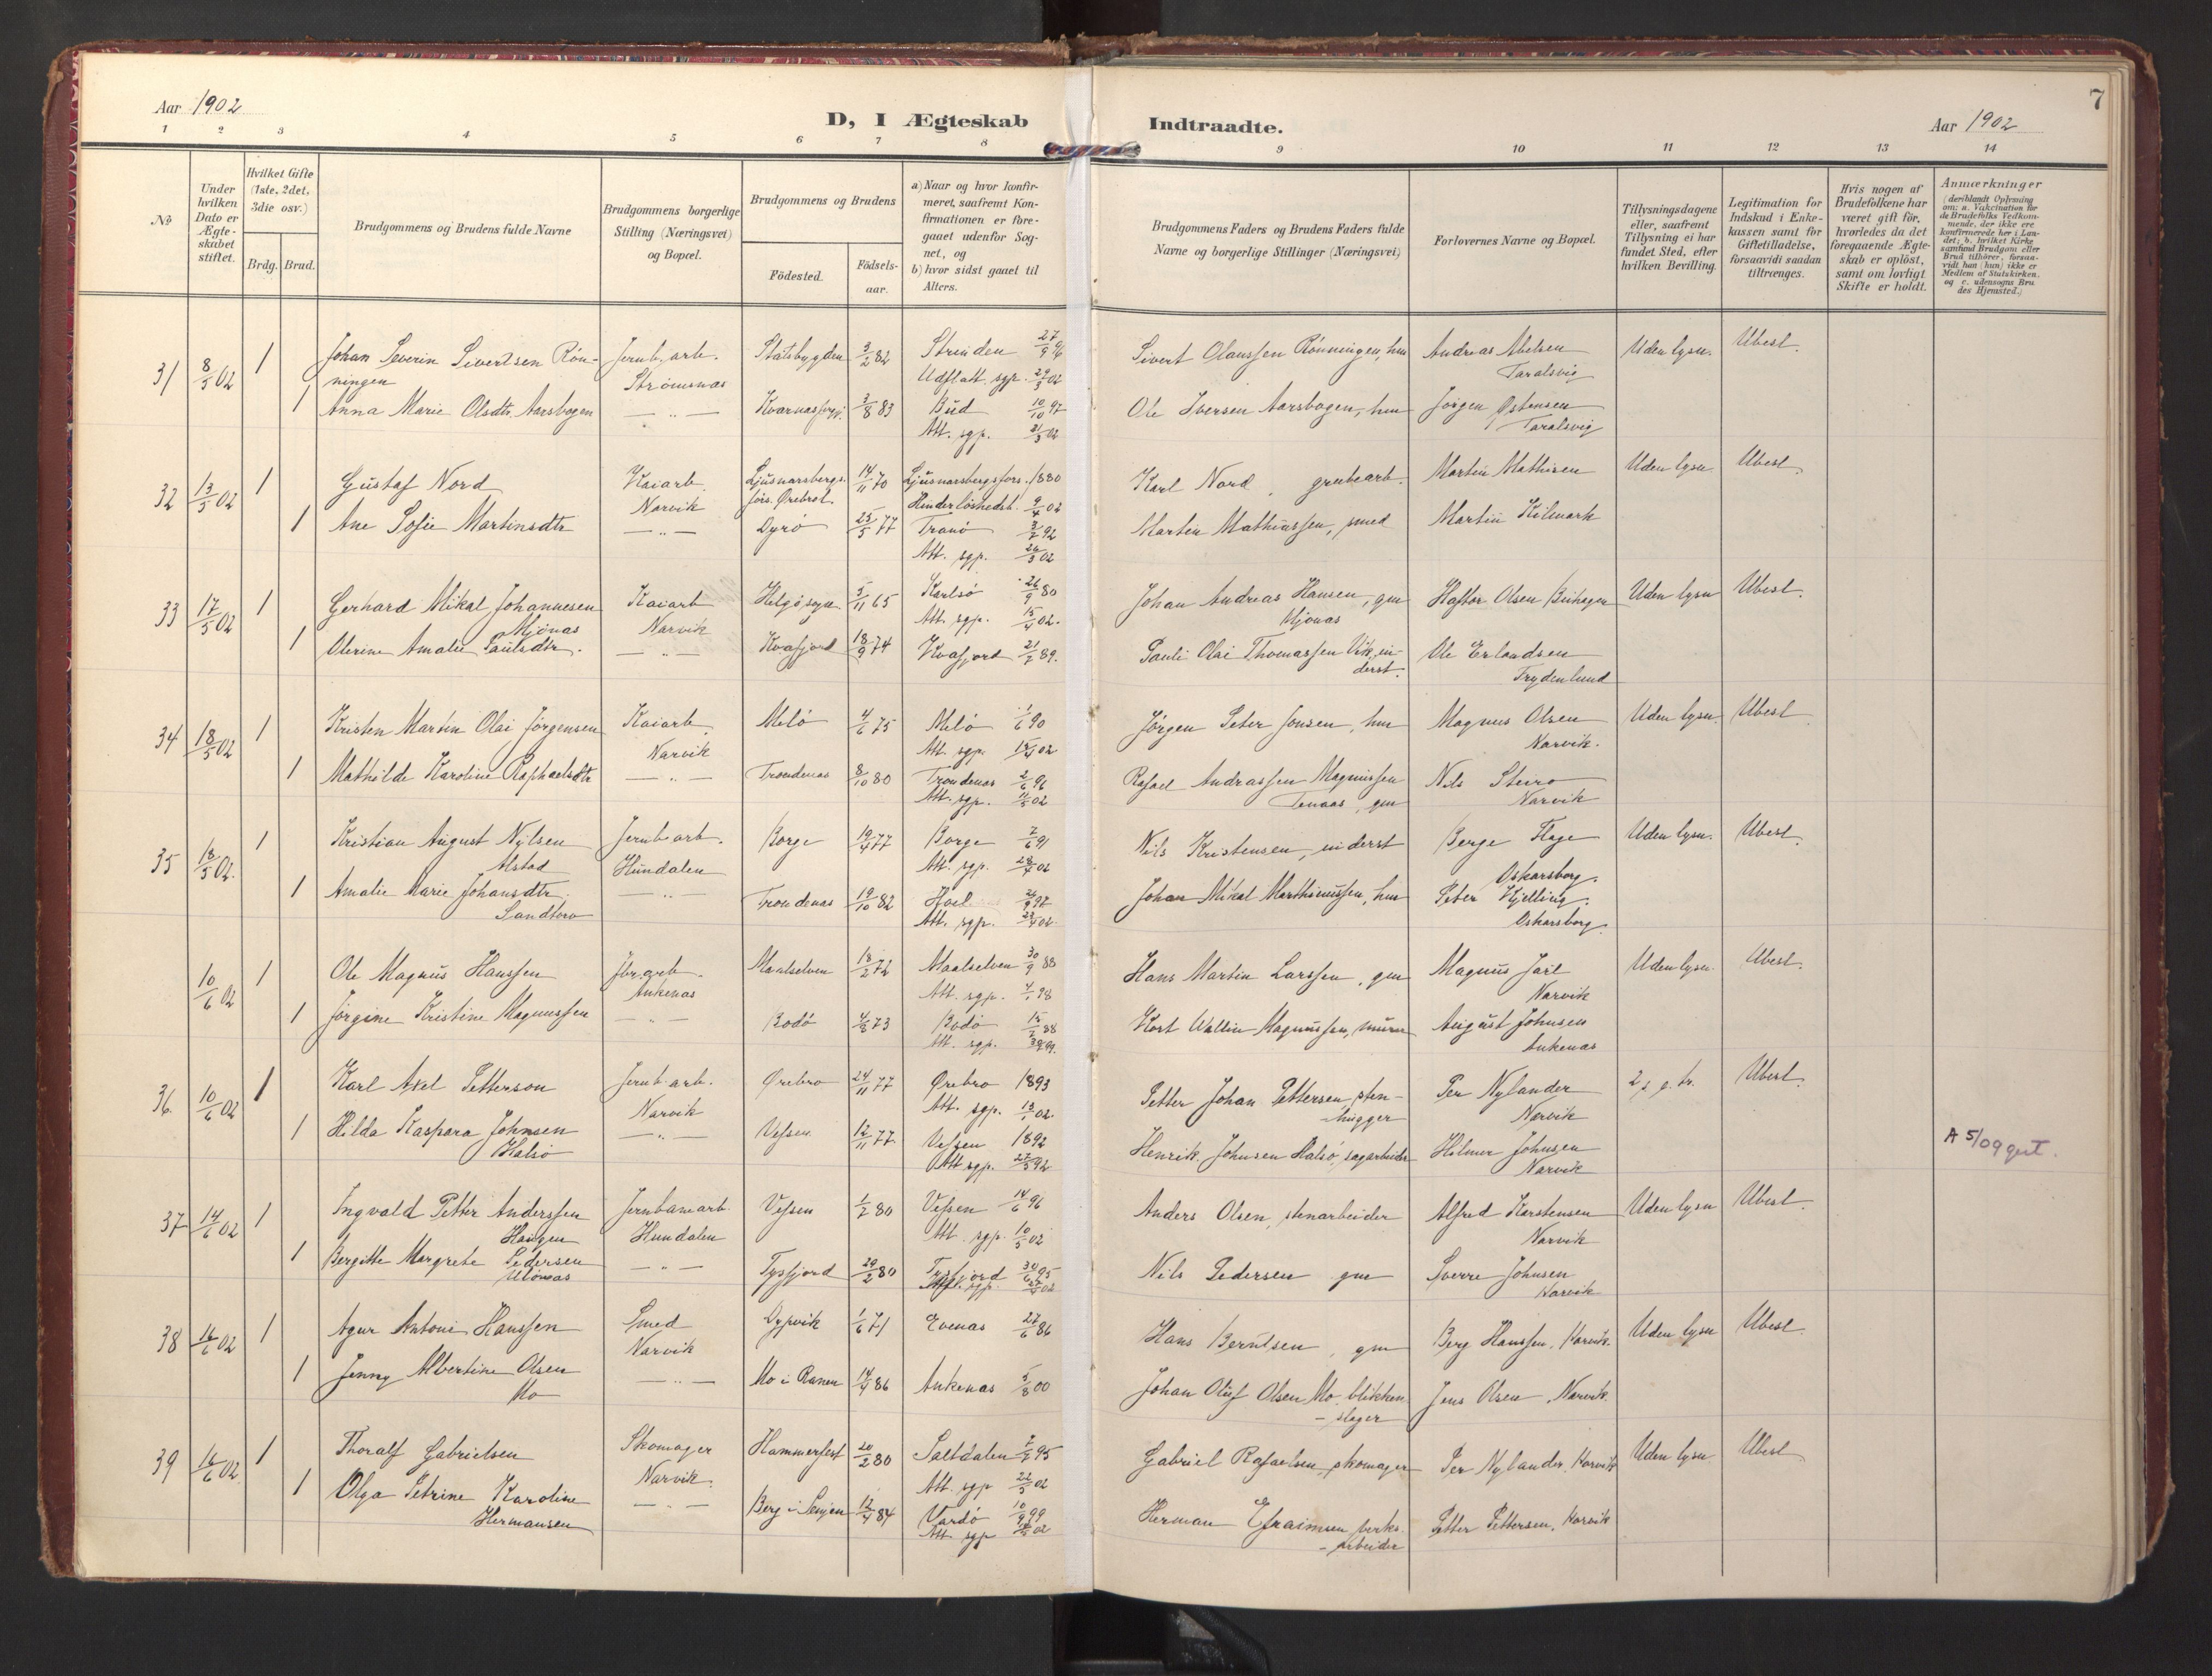 Aar 1902
D, I Ægteskab Indtraadte.
Aar 1902
7
1 2 3 4 5 6 7 8 9 10 11 12 13 14
No
Under hvilken Dato er Ægte-skabet stiftet.
Hvilket Gifte (1ste, 2det, 3die osv.)
Brdg. Brud.
Brudgommens og Brudens fulde Navne
Brudgommens borgerlige Stilling (Næringsvei) og Bopæl.
Brudgommens og Brudens
Fødested.
Fødsels-aar.
a) Naar og hvor konfir-meret, saafremt Kon-firmationen er fore-gaaet udenfor Sog-net, og
b) hvor sidst gaaet til Alters.
Brudgommens Faders og Brudens Faders fulde Navne og borgerlige Stillinger (Næringsvei)
Forlovernes Navne og Bopæl.
Tillysningsdagene eller, saafremt Tillysning ei har fundet Sted, efter hvilken Bevilling.
Legitimation for Indskud i Enke-kassen samt for Giftetilladelse, forsaavidt saadan tiltrænges.
Hvis nogen af Brudefolkene har været gift før, hvorledes da det foregaaende Ægte-skab er opløst, samt om lovligt Skifte er holdt.
Anmærkninger
(deriblandt Oplysning om: a. Vakcination for de Brudefolks Vedkom-mende, der ikke ere konfirmerede her i Lan-det; b. hvilket Kirke samfund Brudgom eller Brud tilhører, forsaa-vidt han (hun) ikke er Medlem af Statskirken. og c. udensogns Bru des Hjemsted.)
31 8/5 02 1 Johan Severin Sivertsen Røn- Jernb.arb. Statsbygden 3/2 82 Strinden 27/9 96 Sivert Olaussen Rønningen, hm Andreas Abelsen Uden lysn. Ubest.
ningen Strømsnas sgp. 29/3 02 Taralsvig
1 Anna Marie Olsdtr. Aarsbogen — " — 3/8 83 Bud 10/10 97 Ole Iversen Aarsbogen, hm Jørgen Østensen
Att. sgp. 31/3 02 Taralsvig
32 13/5 02 1 Gustaf Nord Kaiarb. Ljusnarsbergs- 14/11 70 Ljusnarsbergsfors. 1880 Karl Nord, grubearb. Martin Mathisen Uden lysn Ubest.
Narvik fors. Ørebrol. 9/4 02
1 Ane Sofie Martinsdtr — " — Dyrø 25/5 77 Tranø 3/7 92 Martin Mathiassen, smed Martin Kilmark
Att. sgp. 26/3 02
33 17/5 02 1 Gerhard Mikal Johannesen Kaiarb Helgø sogn 5/11 65 Karlsø 26/9 80 Johan Andreas Hansen, gm Haftor Olsen Uden lysn Ubest.
Mjønas Narvik Att. sgp. 15/4 02. Mjonas
1 Olerine Amalie Paulsdtr. — " — Kvafjord 18/9 74 Kvafjord 21/7 89. Pauli Olai Thomassen Vik, in- Ole Erlandsen
derst. Frydenlund
34 18/5 02 1 Kristen Martin Olai Jørgensen Kaiarb. Melø 4/6 75 Melø 1/6 90 Jørgen Peter Jonsen, hm Magnus Olsen Uden lysn. Ubest.
Narvik Att. sgp. 15/4 02 Narvik.
1 Mathilde Karoline Raphaelsdtr — " — Trondenas 8/10 80 Trondenas 2/6 96 Rafael Andrassen Magnussen Nils Steiro
Att. sgp. 11/5 02 Tenaas, gm Narvik
35 18/5 02. 1 Kristian August Nilsen Jernb.arb. Borge 19/4 77 Borge 7/6 91 Nils Kristensen, inderst Berge Flage Uden lysn. Ubest.
Alstad Hundalen Att. sgp. 28/4 02 Oskarsborg.
1 Amalie Marie Johansdtr. — " — Trondenas 19/10 82 Hol 26/9 97 Johan Mikal Marthinussen, hm Peter Kjelling.
Sandtorv Att. sgp. 28/4 02. Oskarsborg.
10/6 02 1 Ole Magnus Hanssen Jbr.arb. Maalselven 18/2 72 Maalselven 30/9 88 Hans Martin Larssen, gm Magnus Jarl Uden lysn. Ubest.
Ankenas Att. sgp. 98 Narvik
1 Jørgine Kristine Magnussen — " — Bodø 4/6 73 Bodø 15/7 88 Kort Wallin Magnussen, murer August Johnsen
Att. sgp. 99. Ankenas
36. 10/6 02 1 Karl Axel Petterson Jernb.arb. Ørebro 24/11 77 Ørebro 1893 Petter Johan Pettersen, sten- Per Nylander 2 s. e. tr. Ubest.
Narvik Att. sgp. 02. hugger Narvik
1 Hilda Kaspara Johnsen — " — Vefsen 12/11 77 Vefsen 1892 Henrik Johnsen Halsø, sagarbeider Hilmer Johnsen
Halsø Att sgp. 27/5 92 Narvik
A 5/09 gut.
37 14/6 02 1 Ingvald Petter Anderssen Jernbanearb. Vefsen 1/2 80 Vefsen 14/6 96 Anders Olsen, stenarbeider Alfred Karstensen Uden lysn Ubest.
Haugen Hundalen Att. sgp. 10/5 02 Narvik
1 Bergitte Margrete Pedersen — " — Tysfjord 29/2 80 Tysfjord 30/6 95 Nils Pedersen gm Sverre Johnsen
Narvik
38 14/6 02 1 Agur Antoni Hanssen Smed Dypvik 1/6 71 Evenas 27/6 86 Hans Berntsen, gm Berg Hanssen, Narvik. Uden lysn Ubest.
Narvik
1 Jenny Albertine Olsen — " — Mo i Ranen 14/4 86 Ankenas 5/8 00 Johan Oluf Olsen Mo, blikken- Jens Olsen, Narvik.
Mo slager
39 14/6 02. 1 Thoralf Gabrielsen Skomager Hammerfest 20/2 80 Saltdalen 95 Gabriel Rafaelsen, skomager Per Nylander, Narvik Uden lysn. Ubest.
Narvik. Att. sgp 22/5 02
1 Olga Petrine Karoline — " — Berg i Senjen 12/4 84 Vardø 10/9 99 Herman Efraimsen, verks- Petter Pettersen, Narvik
Hermansen Att. sgp 02 arbeider